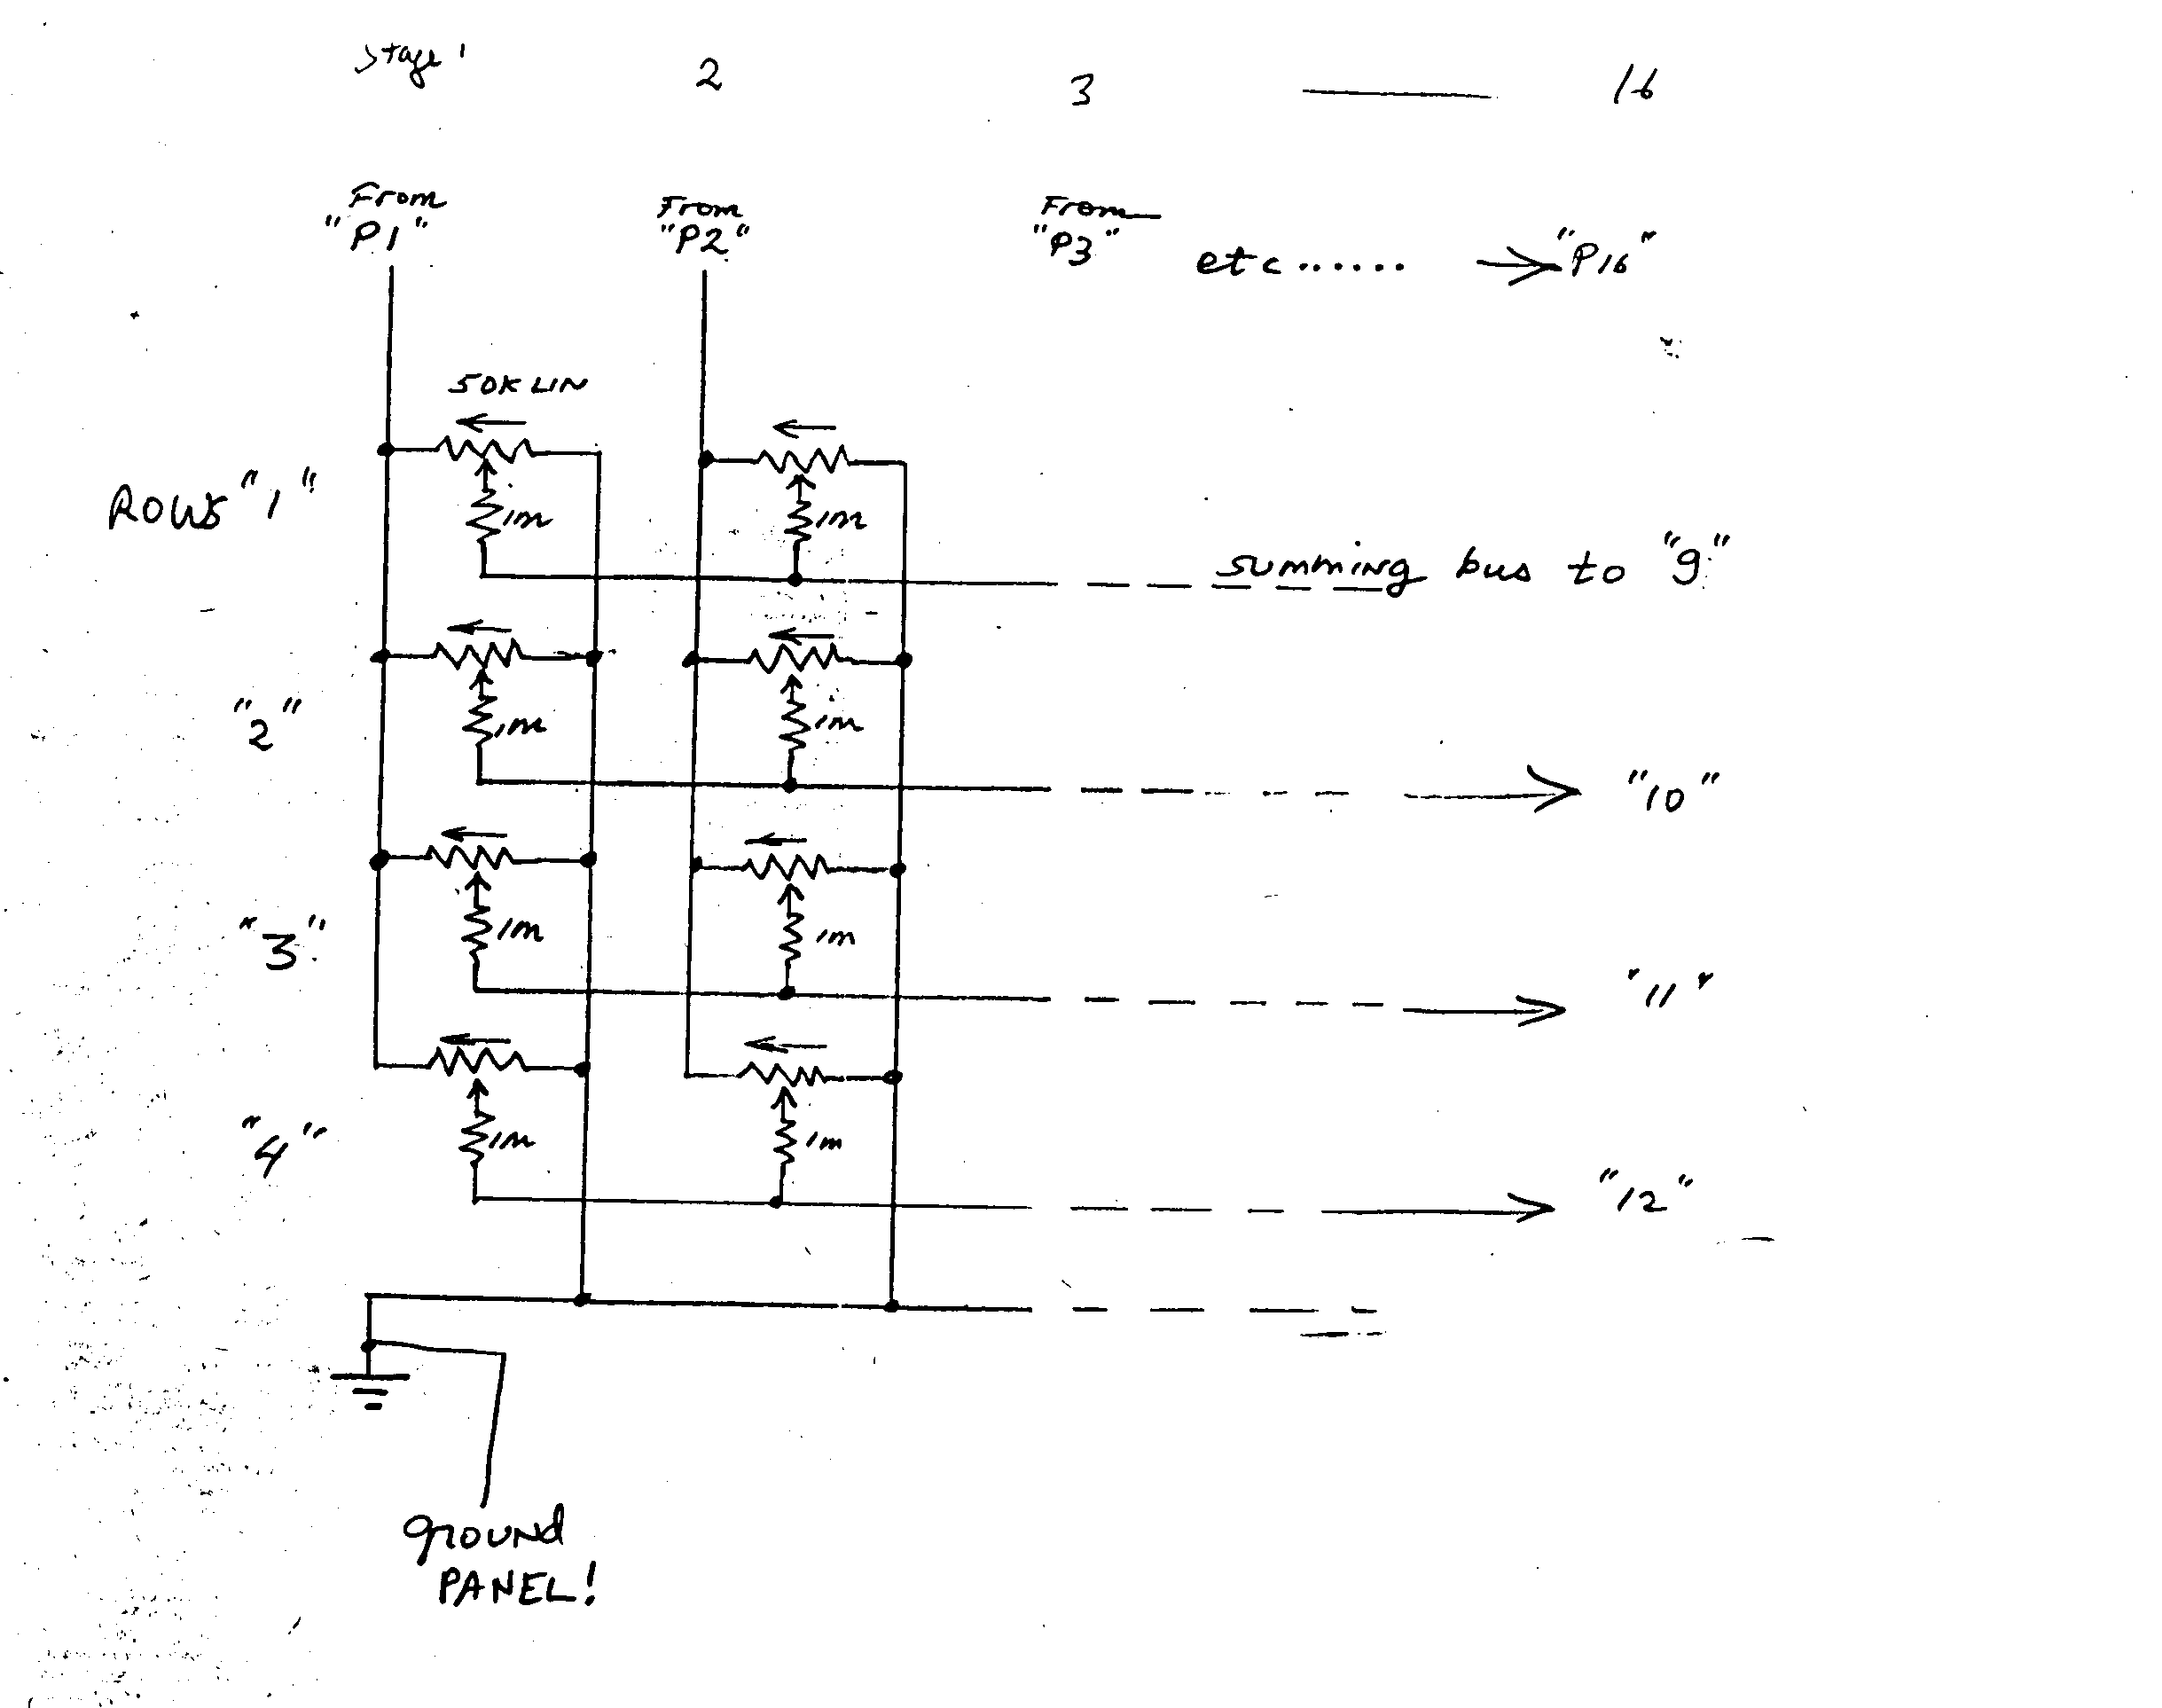 Stage 1 2 3 16
From "P1" From "P2" From "P3" etc...... "P16"
50K LIN
ROWS "1" 1m 1m
summing bus to "9"
"2" 1m 1m
"10"
"3" 1m 1m
"11"
"4" 1m 1m
"12"
ground
PANEL!